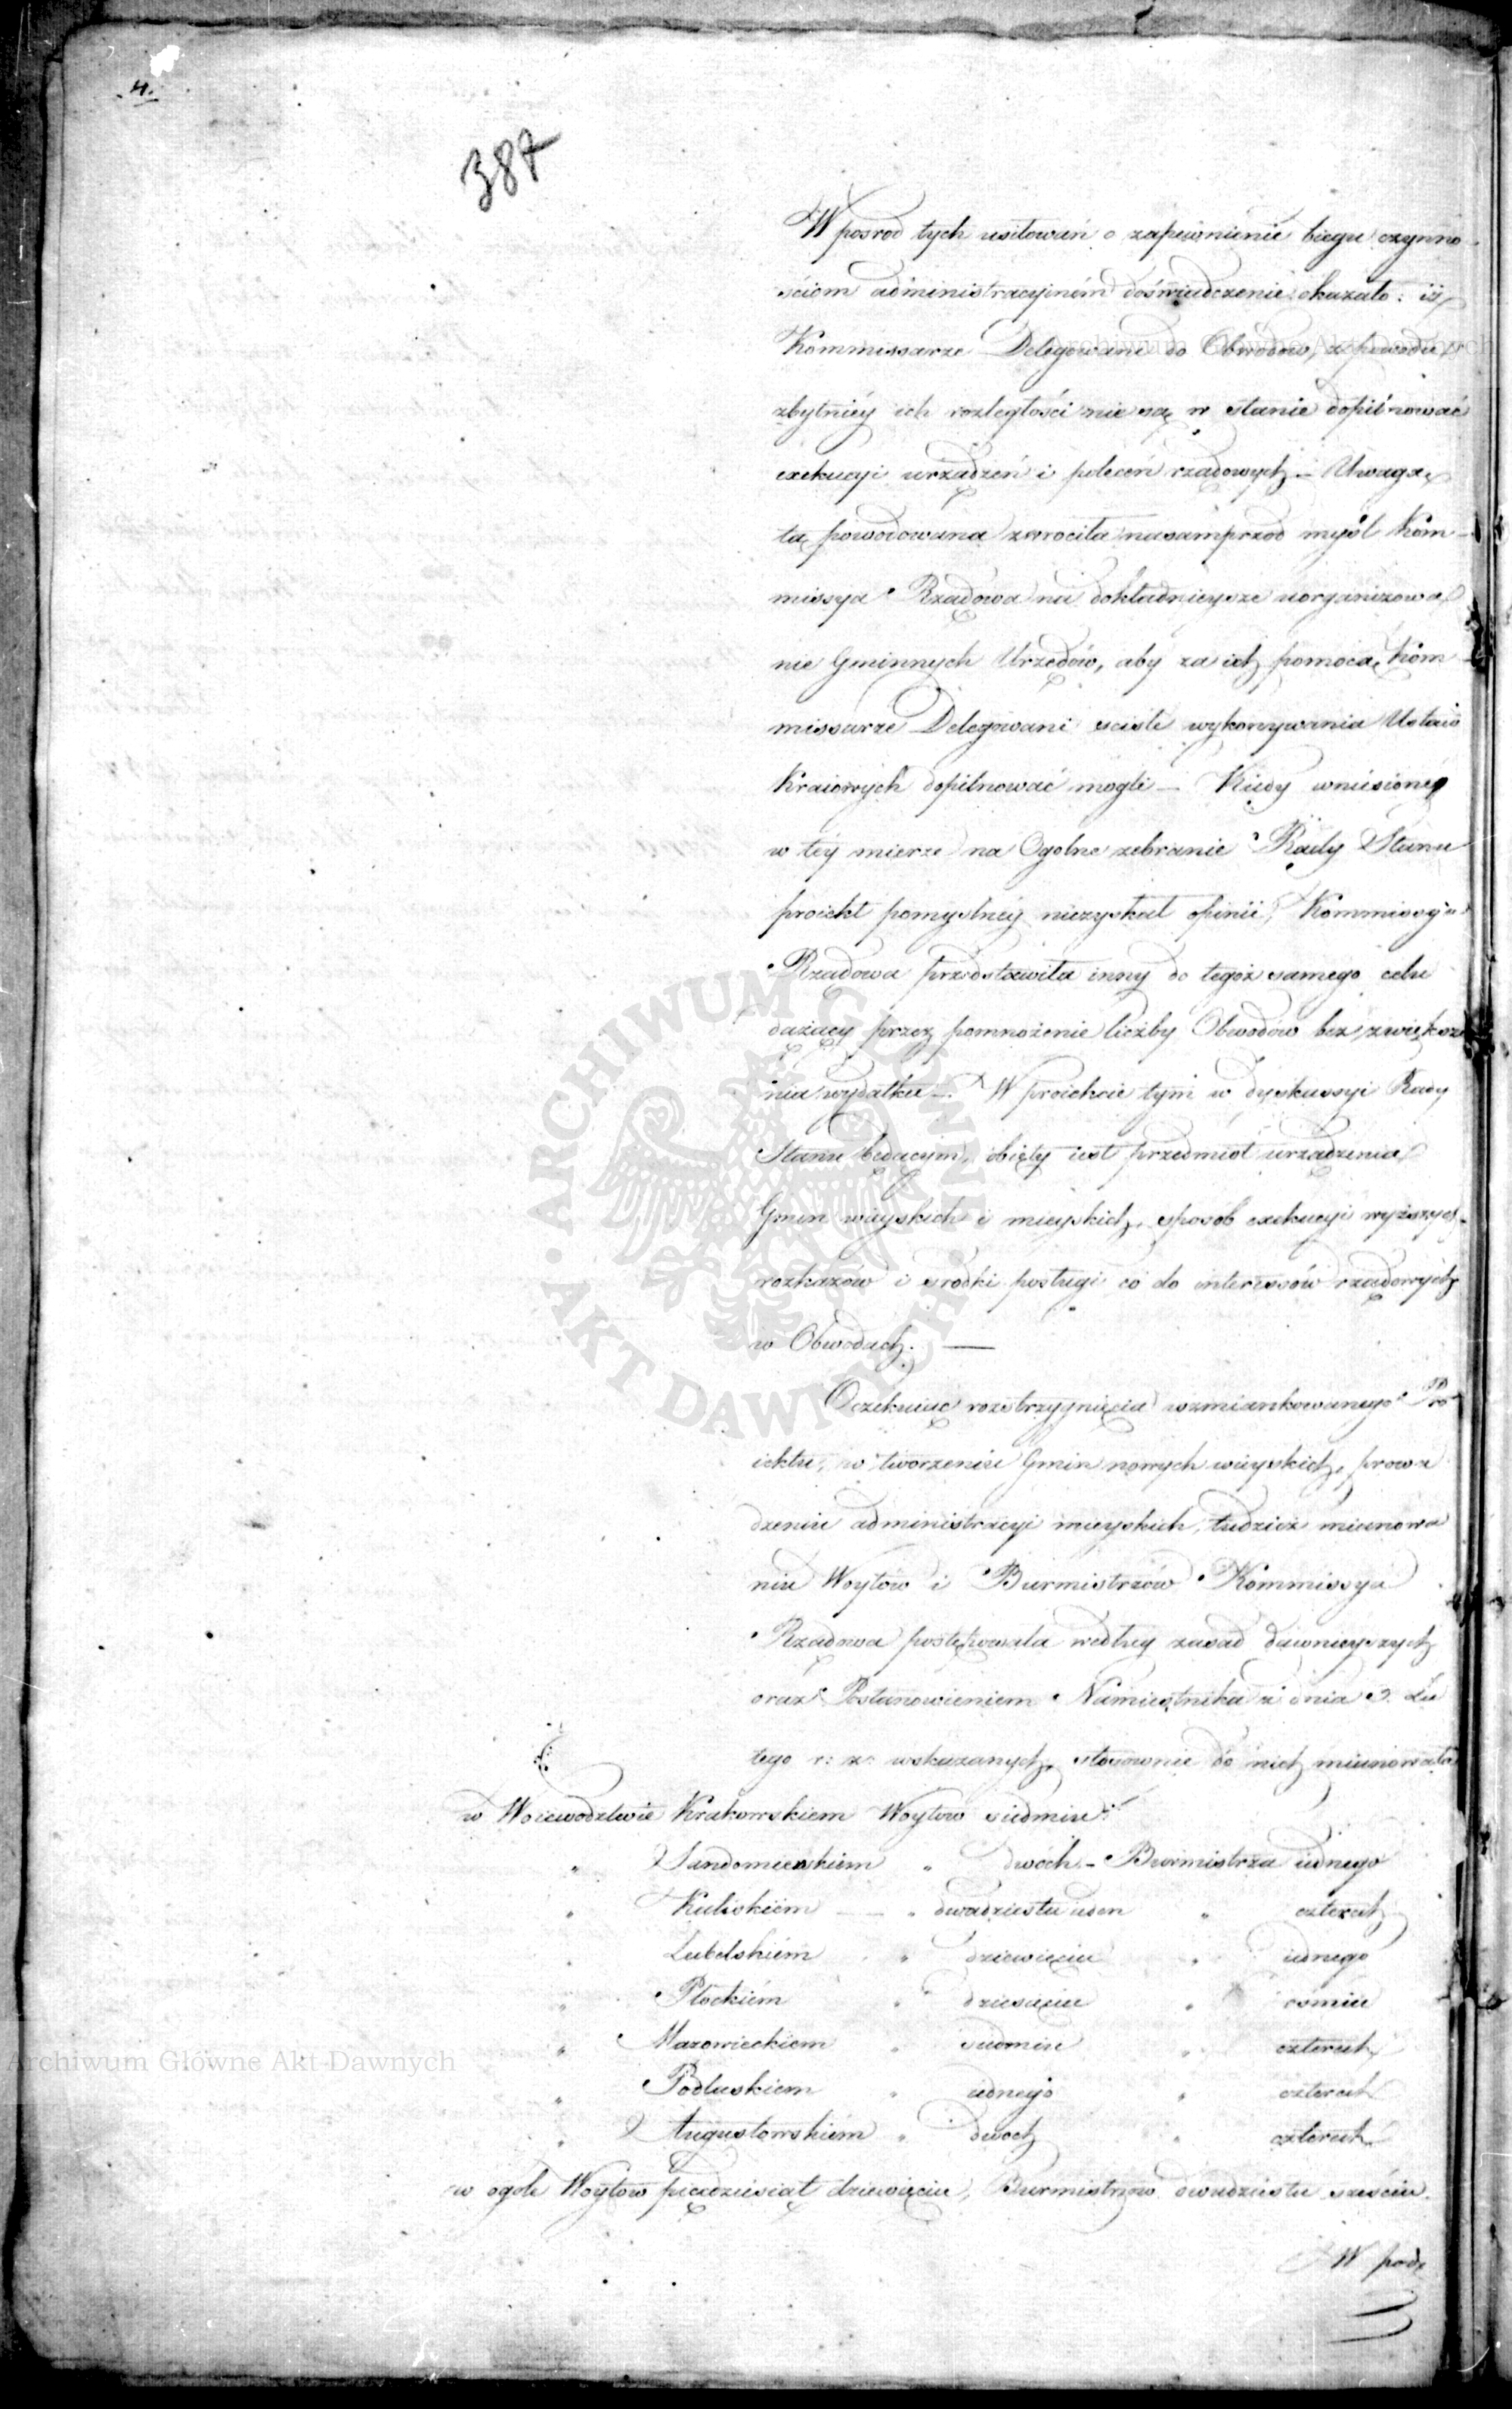 4.
387
W pośrod tych usiłowań o zapewnienie biegu czynno-
ściom administracyjnem doświadczenie okazało: iż
Kommissarze Delegowani do Obwodow, z powodu
zbytniéy ich rozległości nie są w stanie dopilnować
exekucyi urządzeń i poleceń rządowych – Uwagą
tą powodowana zwrociła nasamprzod myśl Kom-
missya Rządowa na dokładnieysze uorganizowa
nie Gminnych Urzędów, aby za ich pomocą Kom-
missarze Delegowani ściśle wykonywania Ustaw
Kraiowych dopilnować mogli – Kiedy wniesiony
w téy mierze na Ogolne zebranie Rady Stanu
proiekt pomyślnéy niezyskał opinii, Kommissya
Rządowa przedstawiła inny do tegoż samego celu
dążący przez pomnożenie liczby Obwodów bez zwiększe
nia wydatku –. W proiekcie tym w dyskussyi Rady
Stanu będącym, obięty iest przedmiot urządzenia
Gmin wieyskich i mieyskich, sposob exekucyi wyższych
rozkazów i środki posługi co do interessów rządowych
w Obwodach. —
Oczekuiąc rozstrzygnięcia wzmiankowanego Pro
iektu, w tworzeniu Gmin nowych wieyskich, prowa
dzeniu administracyi mieyskich, tudzież mianowa
niu Woytów i Burmistrzów Kommissya
Rządowa postępowała według zasad dawnieyszych
oraz Postanowieniem Namiestnika z dnia 3. Lu
tego r: z: wskazanych, stosownie do nich mianowała
w Woiewodztwie Krakowskiem Woytow siedmiu
" Sandomierskiem " dwóch – Burmistrza iednego
" Kaliskiém — " dwudziestu ieden " czterech
" Lubelskiém " dziewięciu " iednego
" Płockiém " dziesięciu " ośmiu
" Mazowieckiem " siedmiu " czterech
" Podlaskiem " iednego " czterech
" Augustowskiém " dwoch " czterech
w ogole Woytow pięćdziesiąt dziewięciu, Burmistrzow dwudziestu sześciu.
W pod
Archiwum Główne Akt Dawnych
Archiwum Główne Akt Dawnych
ARCHIWUM GŁÓWNE • AKT DAWNYCH •